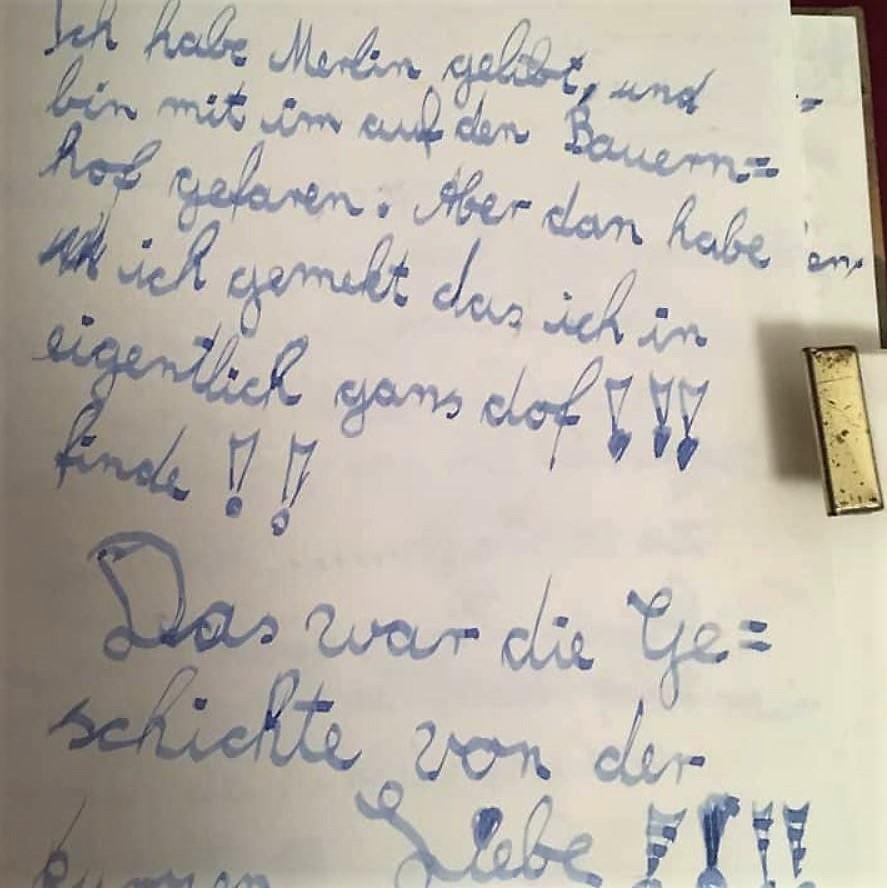 Ich habe Merlin gelibt, und
bin mit im auf den Bauern=
hof gefaren. Aber dan habe
ich gemekt das ich in
eigentlich gans dof !!!
finde !!
Das war die Ge=
schichte von der
kurzen Liebe !!!!